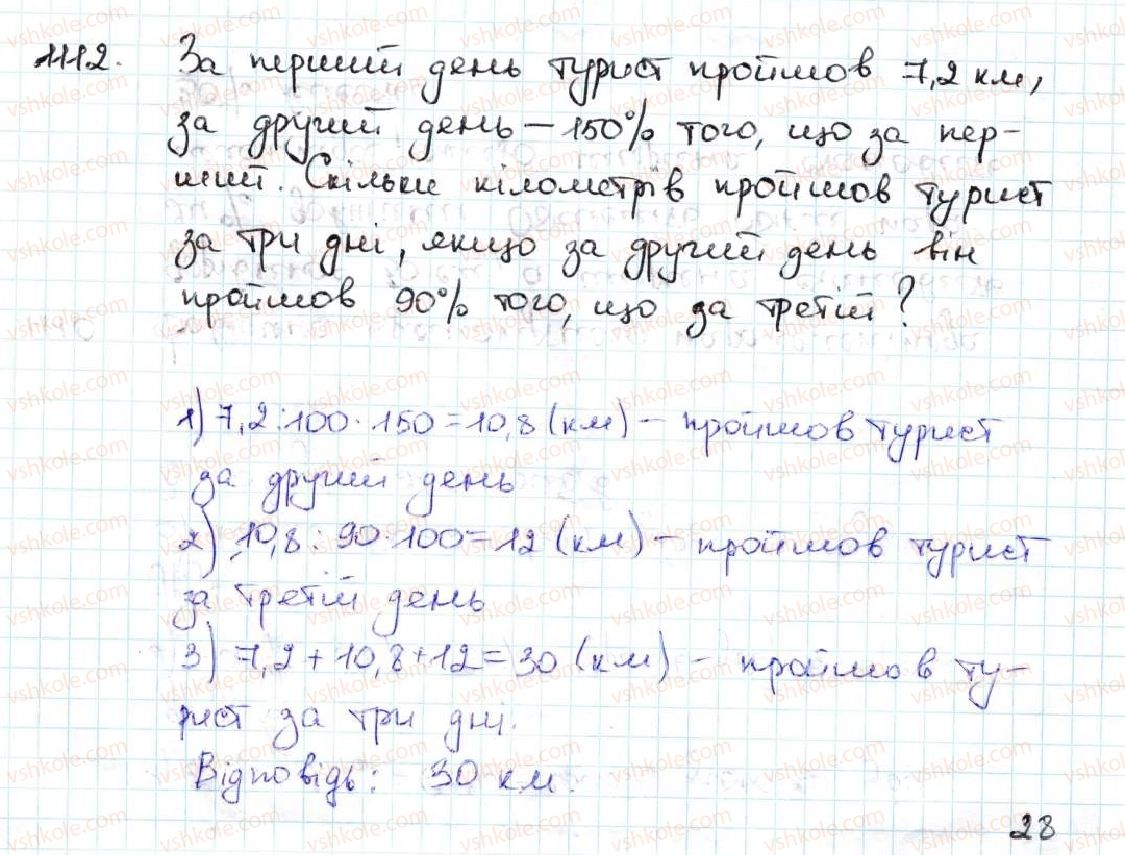 1112. За перший день турист пройшов 7,2 км,
за другий день – 150% того, що за пер-
ший. Скільки кілометрів пройшов турист
за три дні, якщо за другий день він
пройшов 90% того, що за третій?
1) 7,2:100·150=10,8 (км) – пройшов турист
за другий день
2) 10,8:90·100=12 (км) – пройшов турист
за третій день
3) 7,2+10,8+12=30 (км) – пройшов ту-
рист за три дні.
Відповідь: 30 км.
28
vshkole.com